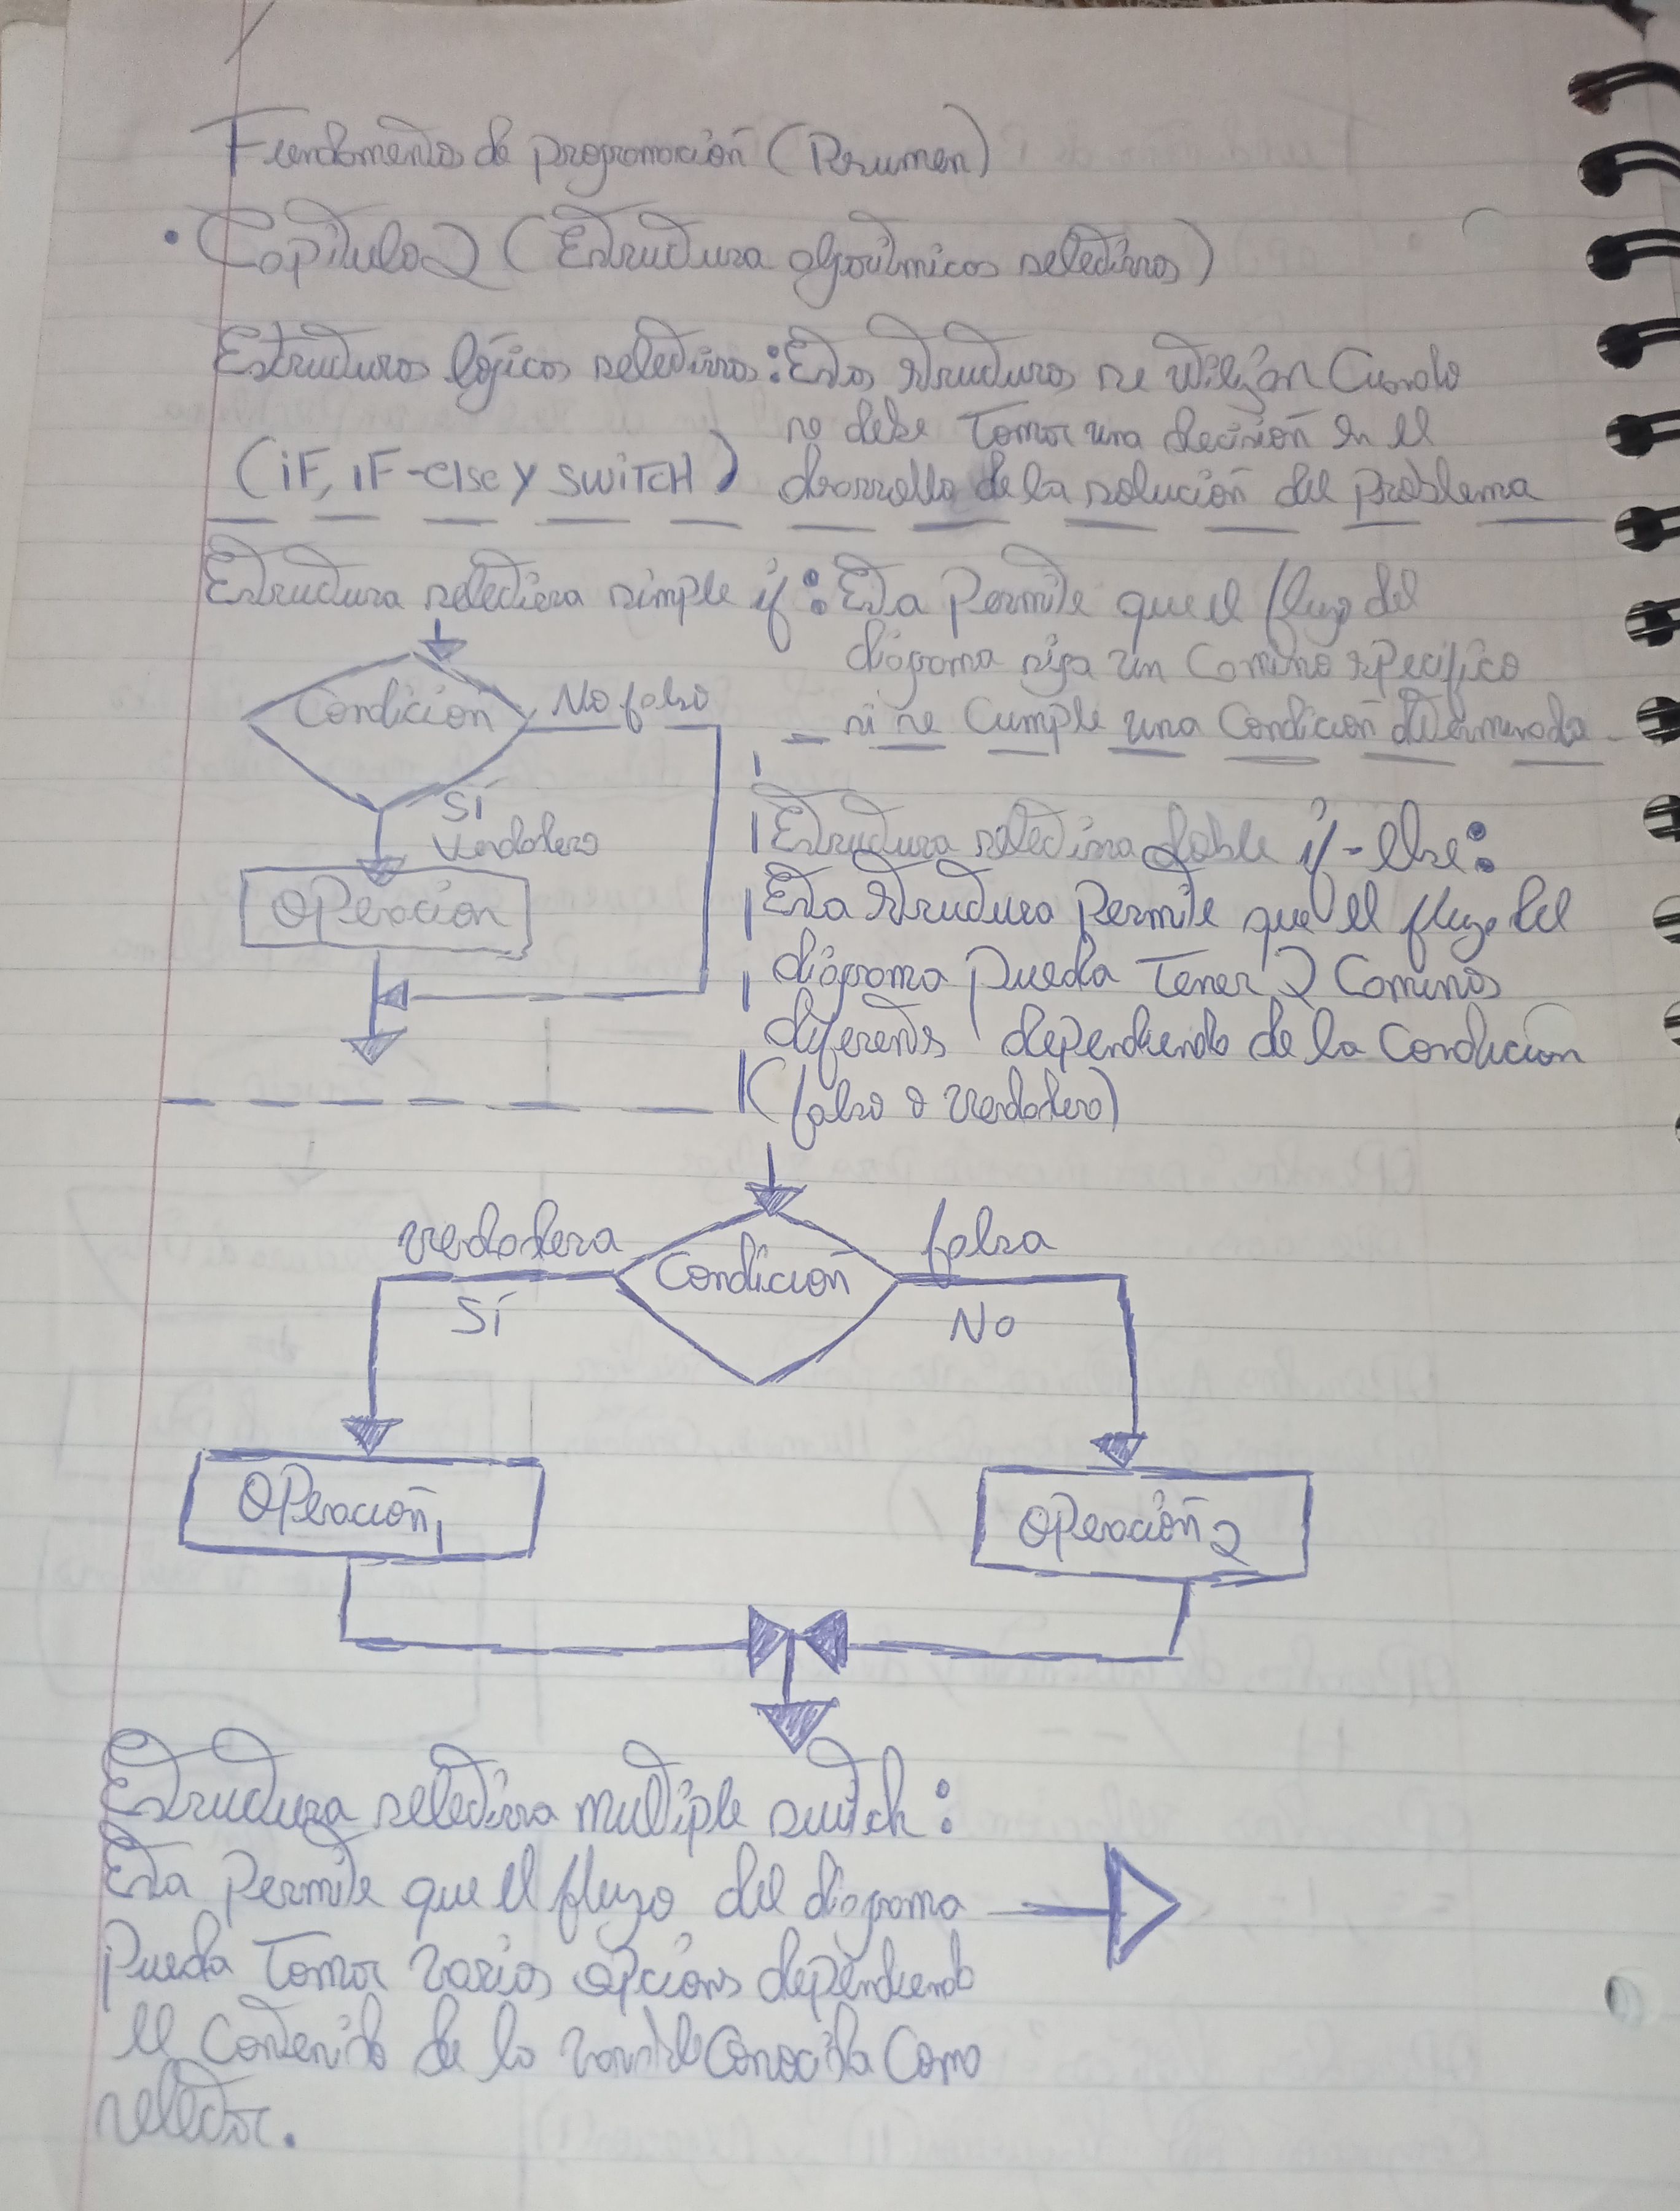 Fundamentos de programación (Resumen)
• Capítulo 2 (Estructura algorítmicas selectivas)
Estructuras lógicas selectivas: Estas estructuras se utilizan cuando
se debe tomar una decisión en el
(IF, IF-else y SWITCH) desarrollo de la solución del problema
Estructura selectiva simple if: Esta permite que el flujo del
diagrama siga un camino especifico
si se cumple una condición determinada
Condición
No falso
Sí
Verdadero
Operación
Estructura selectiva doble if-else:
Esta estructura permite que el flujo del
diagrama pueda tener 2 caminos
diferentes dependiendo de la condición
(falso o verdadero)
verdadera
Condición
falsa
Sí
No
Operación 1
Operación 2
Estructura selectiva multiple switch:
Esta permite que el flujo del diagrama
pueda tomar varias opciones dependiendo
el contenido de la variable conocida como
selector.